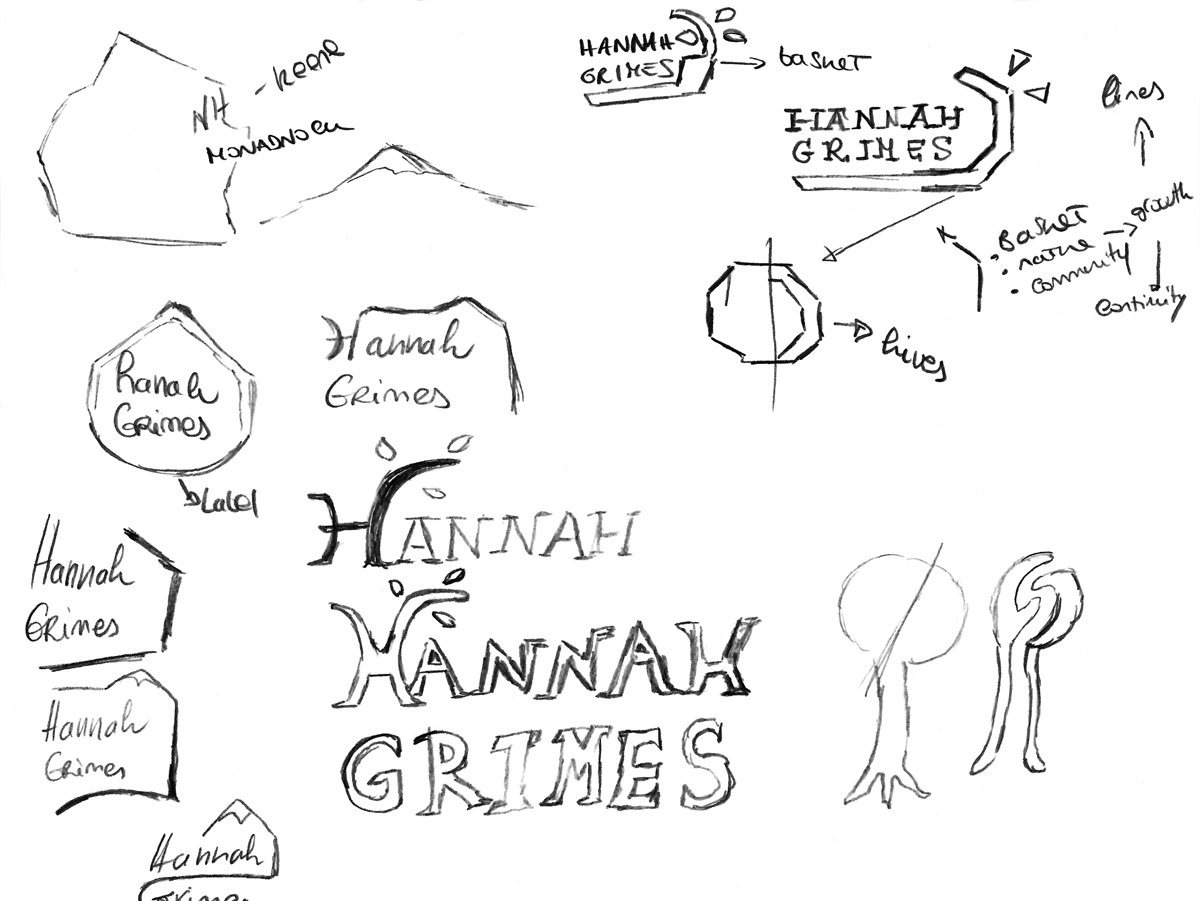 - Keene
NH
MONADNOCK
HANNAH
GRIMES
basket
HANNAH
GRIMES
lines
growth
• BASKET
• nature
• community
continuity
Hanah
GRimes
Label
Hannah
GRimes
HANNAH
Hannah
GRimes
HANNAH
GRIMES
Hannah
GRimes
Hannah
Grimes